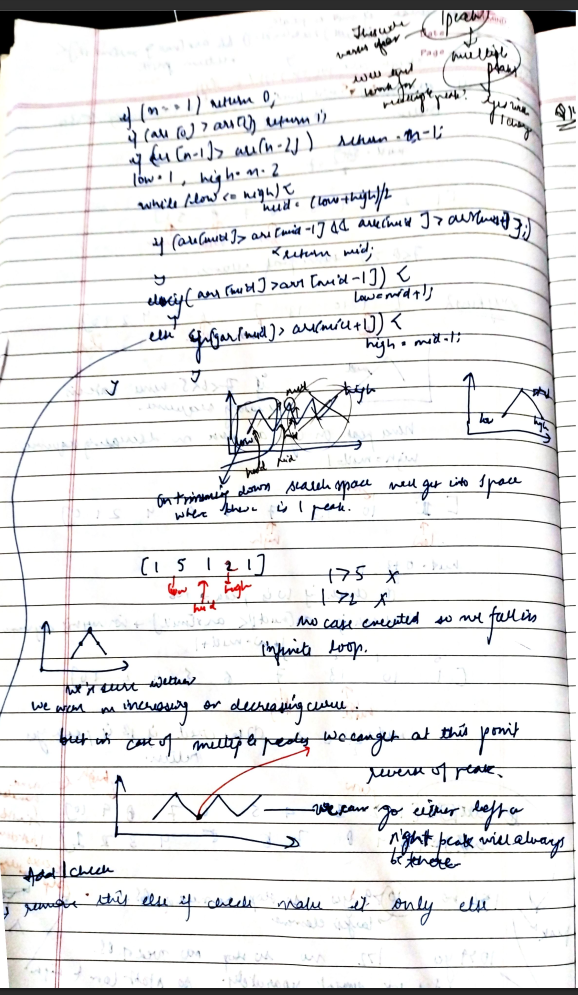 1 peak
This code works for
multiple peaks
will this work for multiple peaks?
yes with 1 change
Page
if (n == 1) return 0;
if (arr[0] > arr[1]) return 0;
if (arr[n-1] > arr[n-2]) return n-1;
low = 1, high = n-2
while (low <= high) {
mid = (low+high)/2
if (arr[mid] > arr[mid-1] && arr[mid] > arr[mid+1]) {
return mid;
}
else if (arr[mid] > arr[mid-1]) {
low = mid+1;
}
else if (arr[mid] > arr[mid+1]) {
high = mid-1;
}
}
mid high
low mid mid
low high
On trimming down search space we'll get into space
where there is 1 peak.
[1 5 1 2 1]
low mid high
1>5 x
1>2 x
no case executed so we fall in
infinite loop.
we're sure wether
we were on increasing or decreasing curve.
but in case of multiple peaks we can get at this point
reverse of peak.
we can go either left or
right peak will always
be there
Add 1 check
remove this else if check make it only else.